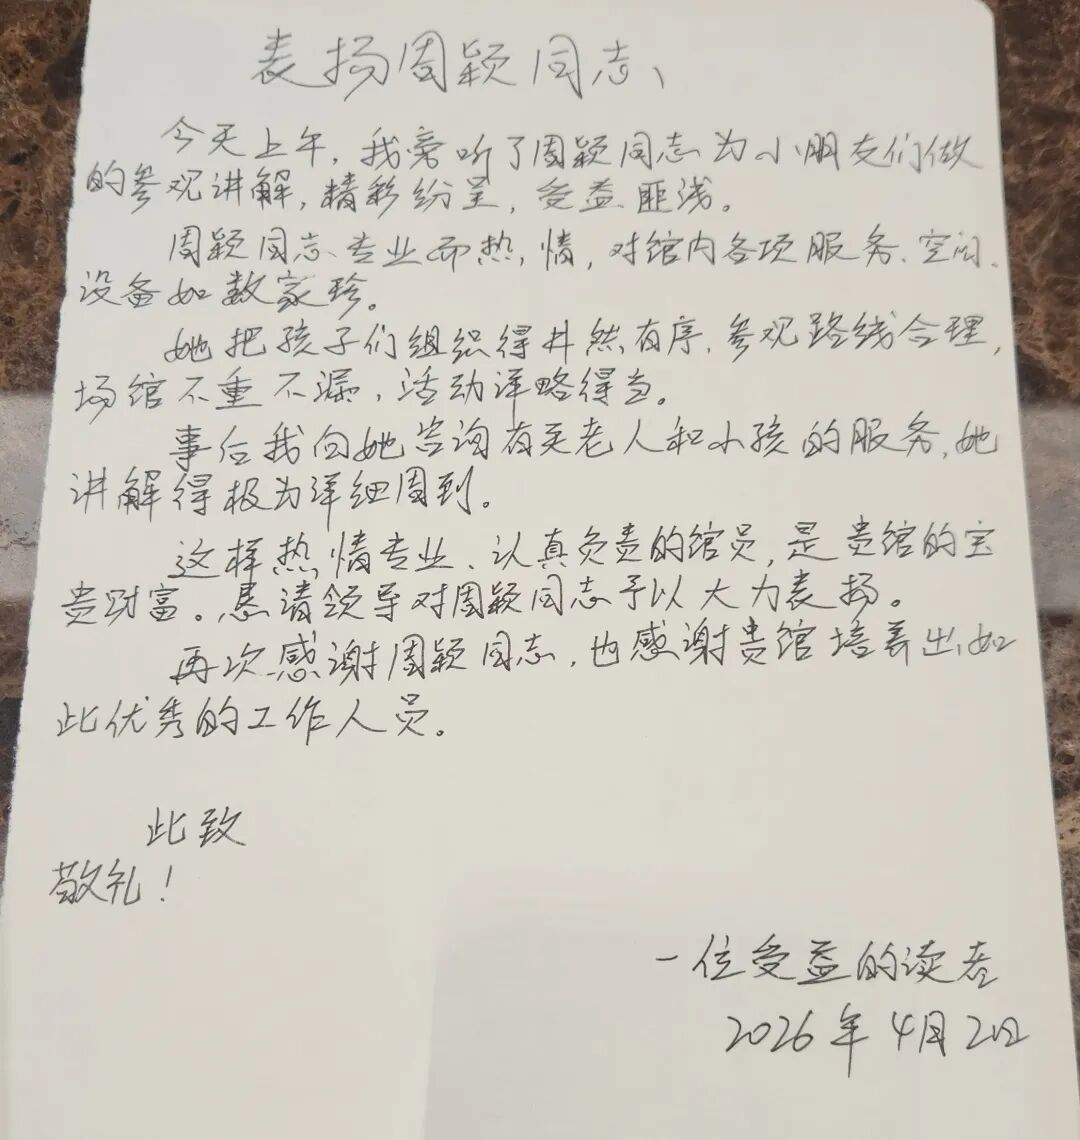 表扬周颖同志
今天上午，我旁听了周颖同志为小朋友们做
的参观讲解，精彩纷呈，受益匪浅。
周颖同志专业而热情，对馆内各项服务、空间、
设备如数家珍。
她把孩子们组织得井然有序，参观路线合理，
场馆不重不漏，活动详略得当。
事后我向她咨询有关老人和小孩的服务，她
讲解得极为详细周到。
这样热情专业、认真负责的馆员，是贵馆的宝
贵财富。恳请领导对周颖同志予以大力表扬。
再次感谢周颖同志，也感谢贵馆培养出如
此优秀的工作人员。
此致
敬礼！
一位受益的读者
2026年4月2日